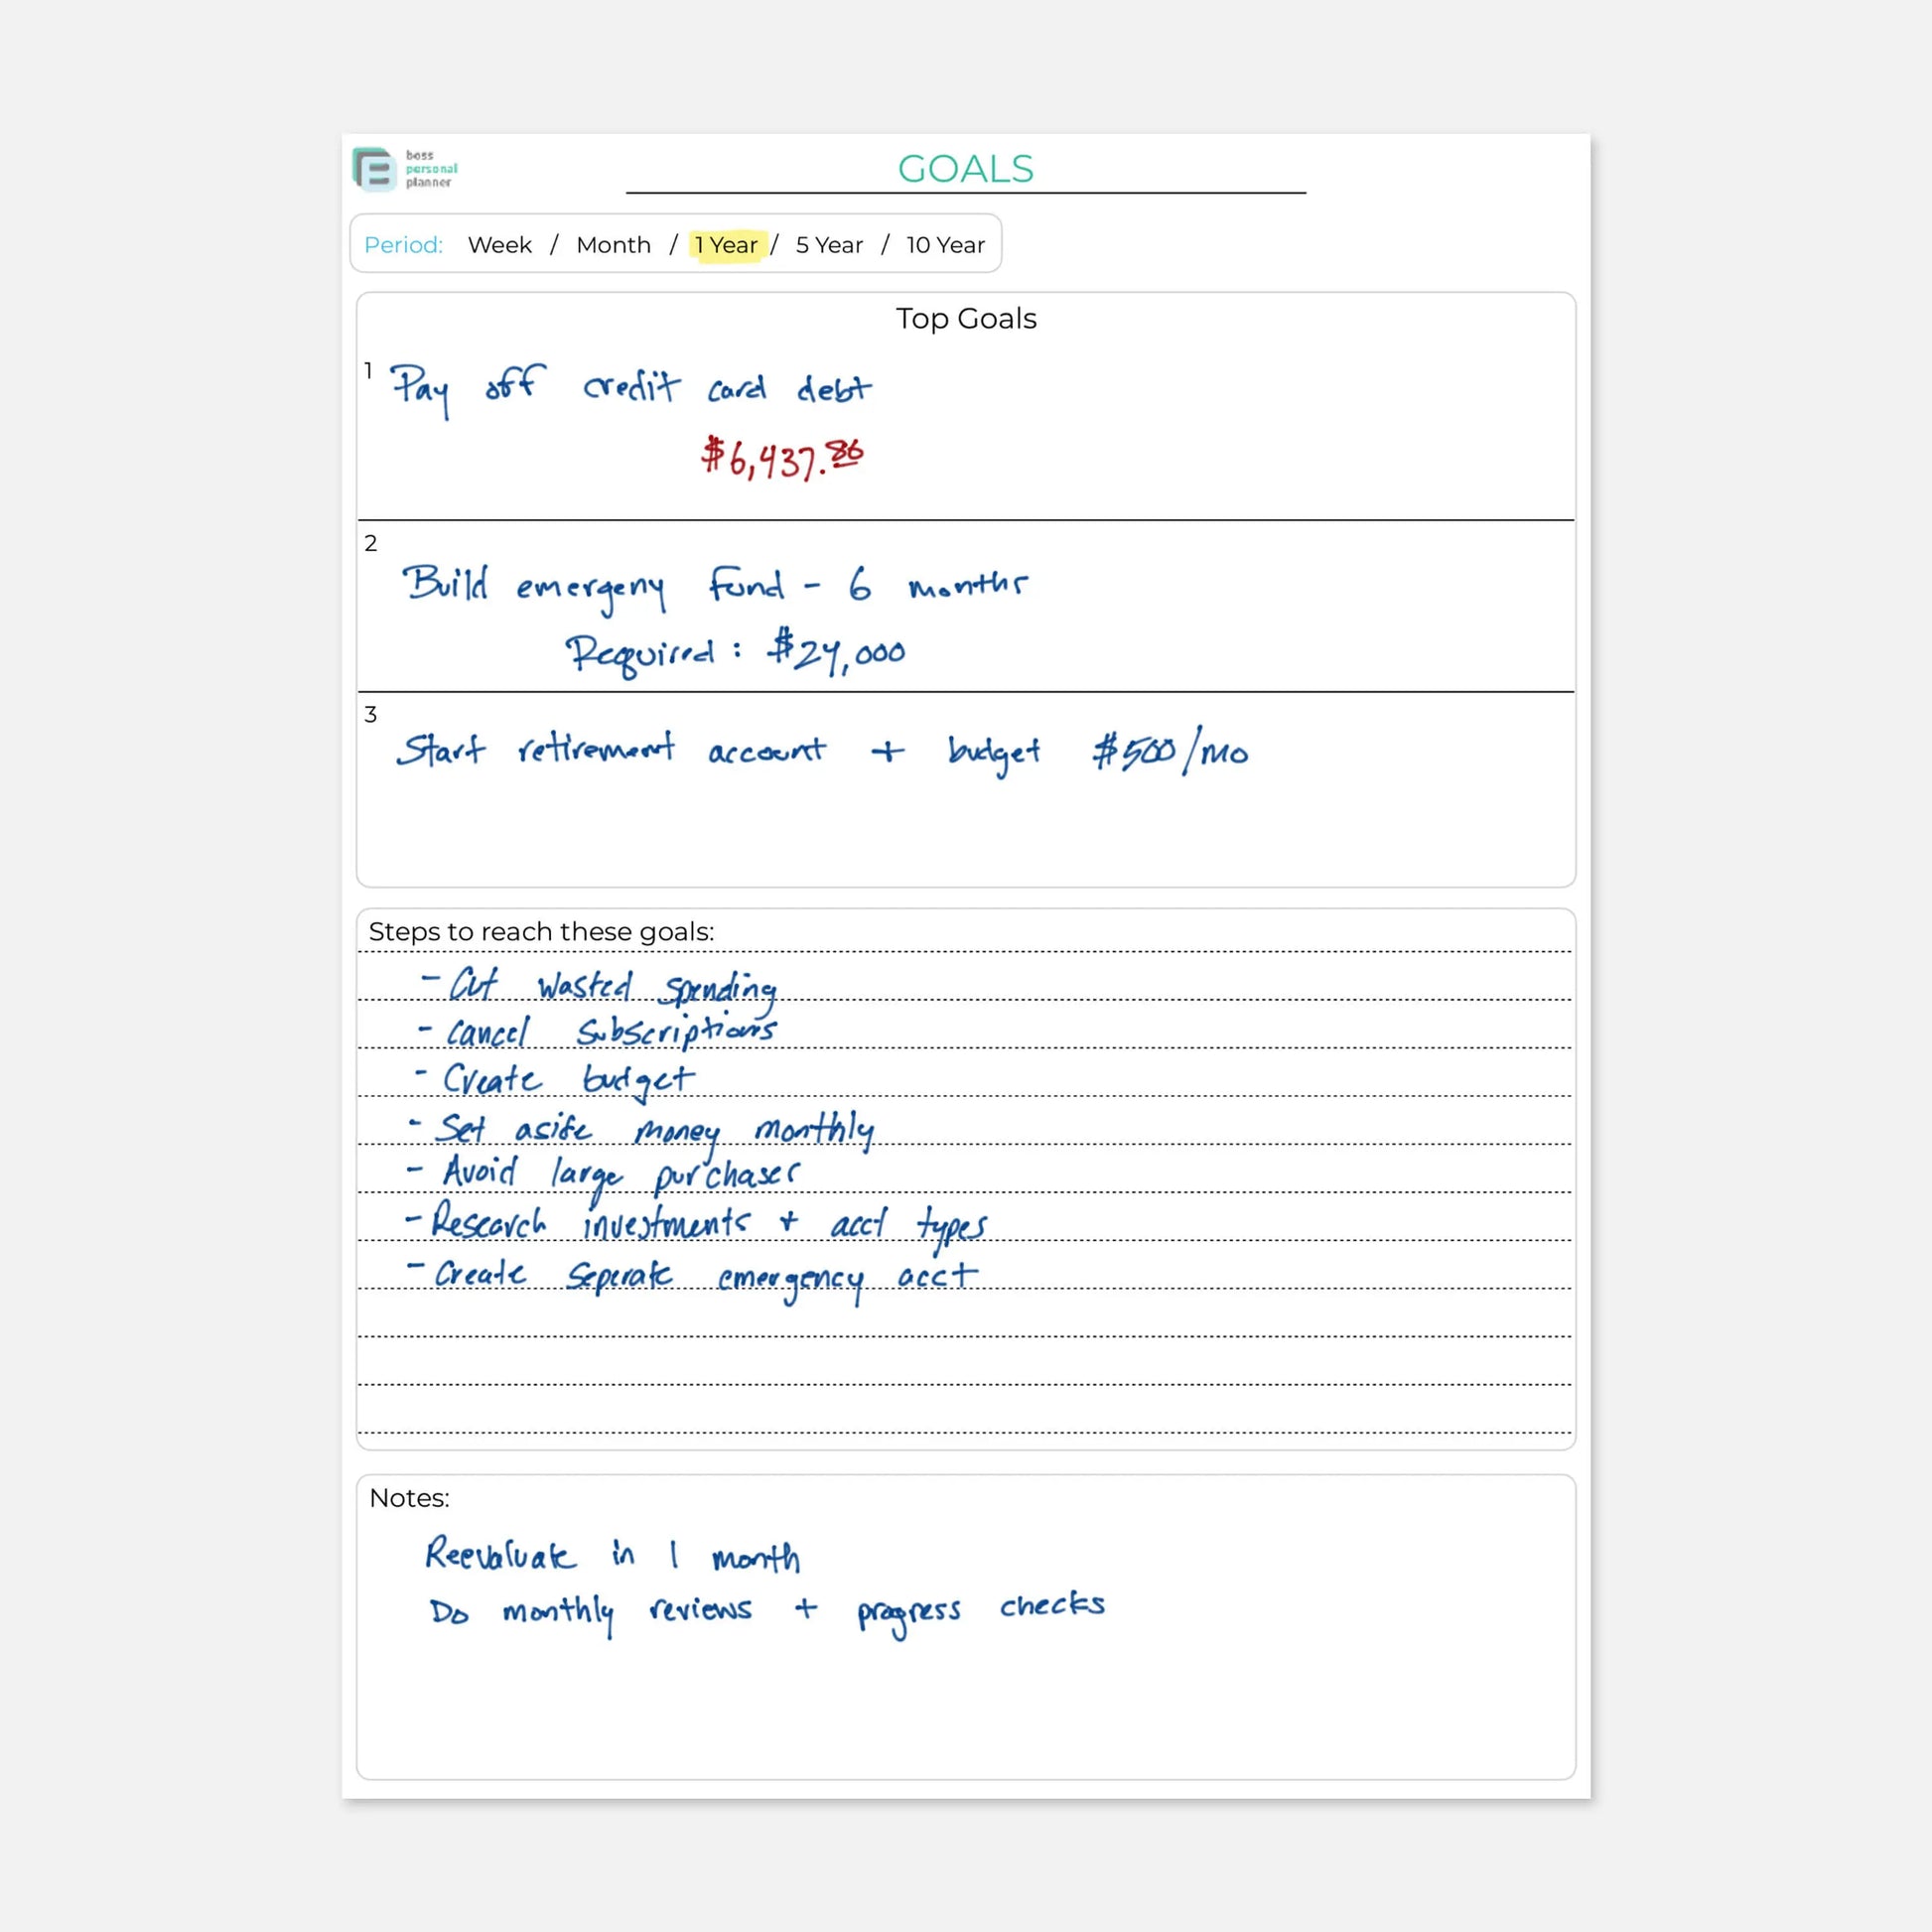 boss
personal
planner
GOALS
Period: Week / Month / 1 Year / 5 Year / 10 Year
Top Goals
1 Pay off credit card debt
$6,437.86
2
Build emergeny fund - 6 months
Required: $24,000
3
Start retirement account + budget $500/mo
Steps to reach these goals:
- Cut wasted spending
- Cancel subscriptions
- Create budget
- Set aside money monthly
- Avoid large purchases
- Research investments + acct types
- Create seperate emergency acct
Notes:
Reevaluate in 1 month
Do monthly reviews + progress checks